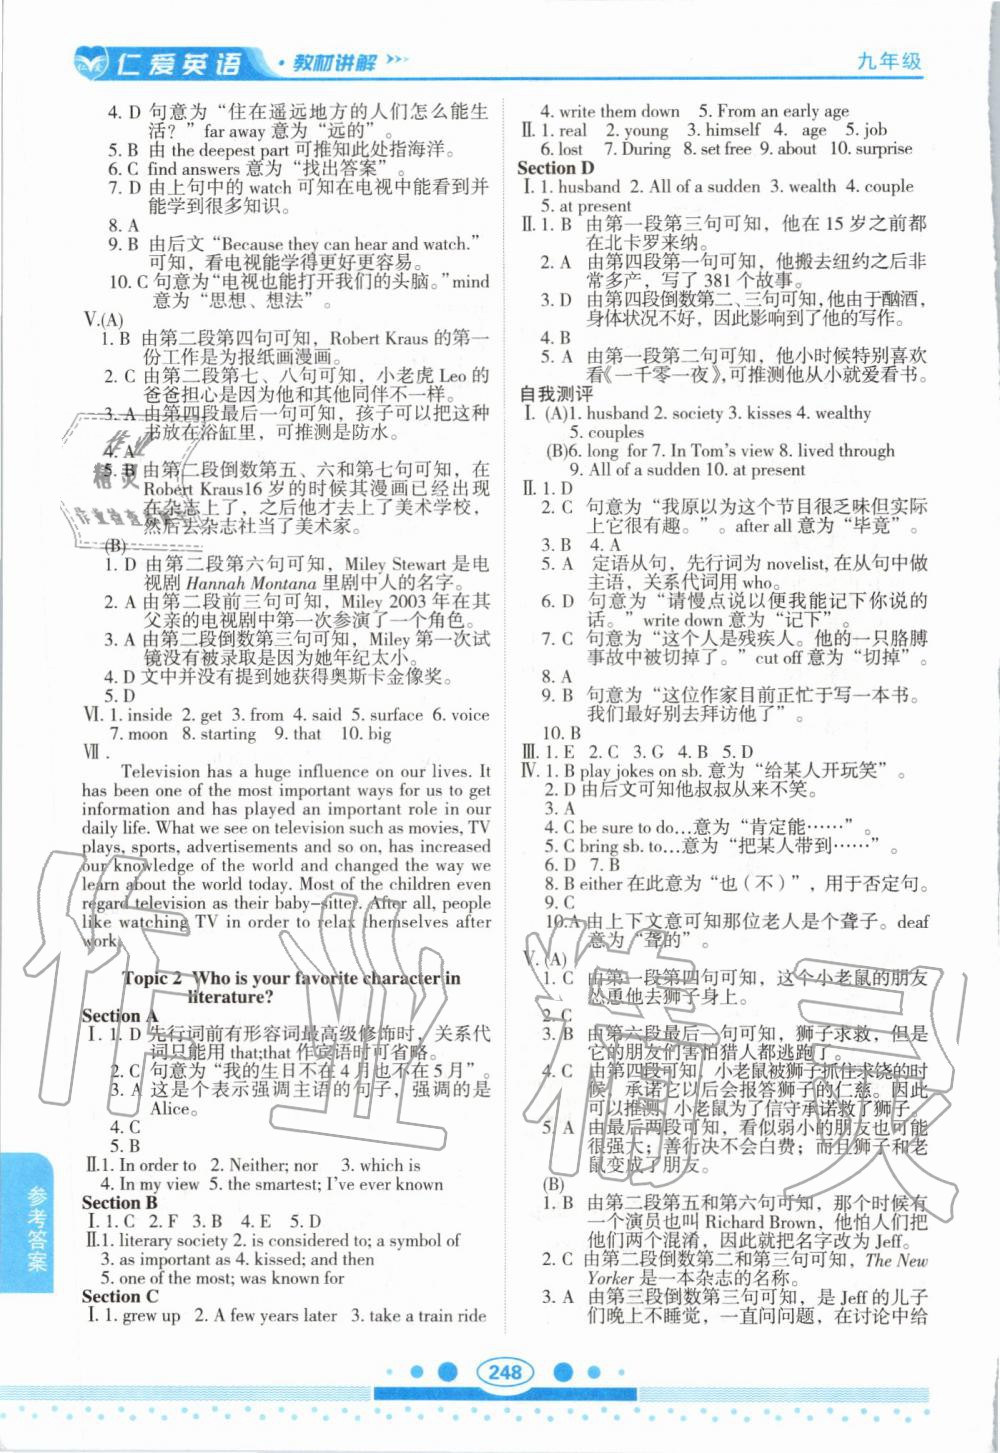 仁爱英语·教材讲解
九年级
4. D 句意为“住在遥远地方的人们怎么能生
活？”far away 意为“远的”。
5. B 由 the deepest part 可推知此处指海洋。
6. C find answers 意为“找出答案”。
7. D 由上句中的 watch 可知在电视中能看到并
能学到很多知识。
8. A
9. B 由后文“Because they can hear and watch.”
可知，看电视能学得更好更容易。
10. C 句意为“电视也能打开我们的头脑。”mind
意为“思想、想法”。
Ⅴ.(A)
1. B 由第二段第四句可知，Robert Kraus 的第一
份工作是为报纸画漫画。
2. C 由第二段第七、八句可知，小老虎 Leo 的
爸爸担心是因为他和其他同伴不一样。
3. A 由第四段最后一句可知，孩子可以把这种
书放在浴缸里，可推测是防水。
4. A
5. B 由第二段倒数第五、六和第七句可知，在
Robert Kraus16 岁的时候其漫画已经出现
在杂志上了，之后他才去上了美术学校，
然后去杂志社当了美术家。
(B)
1. D 由第二段第六句可知，Miley Stewart 是电
视剧 Hannah Montana 里剧中人的名字。
2. A 由第二段前三句可知，Miley 2003 年在其
父亲的电视剧中第一次参演了一个角色。
3. A 由第二段倒数第三句可知，Miley 第一次试
镜没有被录取是因为她年纪太小。
4. D 文中并没有提到她获得奥斯卡金像奖。
5. D
Ⅵ. 1. inside 2. get 3. from 4. said 5. surface 6. voice
7. moon 8. starting 9. that 10. big
Ⅶ.
Television has a huge influence on our lives. It
has been one of the most important ways for us to get
information and has played an important role in our
daily life. What we see on television such as movies, TV
plays, sports, advertisements and so on, has increased
our knowledge of the world and changed the way we
learn about the world today. Most of the children even
regard television as their baby-sitter. After all, people
like watching TV in order to relax themselves after
work.
Topic 2 Who is your favorite character in
literature?
Section A
Ⅰ. 1. D 先行词前有形容词最高级修饰时，关系代
词只能用 that;that 作宾语时可省略。
2. C 句意为“我的生日不在4月也不在5月”。
3. A 这是个表示强调主语的句子，强调的是
Alice。
4. C
5. B
Ⅱ.1. In order to 2. Neither; nor 3. which is
4. In my view 5. the smartest; I've ever known
Section B
Ⅰ. 1. C 2. F 3. B 4. E 5. D
Ⅱ.1. literary society 2. is considered to; a symbol of
3. as important as 4. kissed; and then
5. one of the most; was known for
Section C
Ⅰ. 1. grew up 2. A few years later 3. take a train ride
4. write them down 5. From an early age
Ⅱ. 1. real 2. young 3. himself 4. age 5. job
6. lost 7. During 8. set free 9. about 10. surprise
Section D
Ⅰ. 1. husband 2. All of a sudden 3. wealth 4. couple
5. at present
Ⅱ. 1. B 由第一段第三句可知，他在 15 岁之前都
在北卡罗来纳。
2. A 由第四段第一句可知，他搬去纽约之后非
常多产，写了 381 个故事。
3. D 由第四段倒数第二、三句可知，他由于酗酒，
身体状况不好，因此影响到了他的写作。
4. B
5. A 由第一段第二句可知，他小时候特别喜欢
看《一千零一夜》，可推测他从小就爱看书。
自我测评
Ⅰ. (A)1. husband 2. society 3. kisses 4. wealthy
5. couples
(B)6. long for 7. In Tom's view 8. lived through
9. All of a sudden 10. at present
Ⅱ. 1. D
2. C 句意为“我原以为这个节目很乏味但实际
上它很有趣。”。after all 意为“毕竟”。
3. B 4. A
5. A 定语从句，先行词为 novelist, 在从句中做
主语，关系代词用 who。
6. D 句意为“请慢点说以便我能记下你说的
话。”write down 意为“记下”。
7. C 句意为“这个人是残疾人。他的一只胳膊
事故中被切掉了。”cut off 意为“切掉”。
8. A
9. B 句意为“这位作家目前正忙于写一本书。
我们最好别去拜访他了”。
10. B
Ⅲ. 1. E 2. C 3. G 4. B 5. D
Ⅳ. 1. B play jokes on sb. 意为“给某人开玩笑”。
2. D 由后文可知他叔叔从来不笑。
3. A
4. C be sure to do…意为“肯定能……”。
5. C bring sb. to…意为“把某人带到……”。
6. D 7. B
8. B either 在此意为“也（不）”，用于否定句。
9. C
10. A 由上下文意可知那位老人是个聋子。deaf
意为“聋的”。
Ⅴ. (A)
1. C 由第一段第四句可知，这个小老鼠的朋友
怂恿他去狮子身上。
2. C
3. B 由第六段最后一句可知，狮子求救，但是
它的朋友们害怕猎人都逃跑了。
4. C 由第四段可知，小老鼠被狮子抓住求饶的时
候，承诺它以后会报答狮子的仁慈。因此可
以推测，小老鼠为了信守承诺救了狮子。
5. A 由最后两段可知，看似弱小的朋友也可能
很强大；善行决不会白费；而且狮子和老
鼠变成了朋友。
(B)
1. B 由第二段第五和第六句可知，那个时候有
一个演员也叫 Richard Brown，他怕人们把
他们两个混淆，因此就把名字改为 Jeff。
2. C 由第二段倒数第二和第三句可知，The New
Yorker 是一本杂志的名称。
3. A 由第三段倒数第三句可知，是 Jeff 的儿子
们晚上不睡觉，一直问问题，在讨论中给
参考答案
248
作业精灵